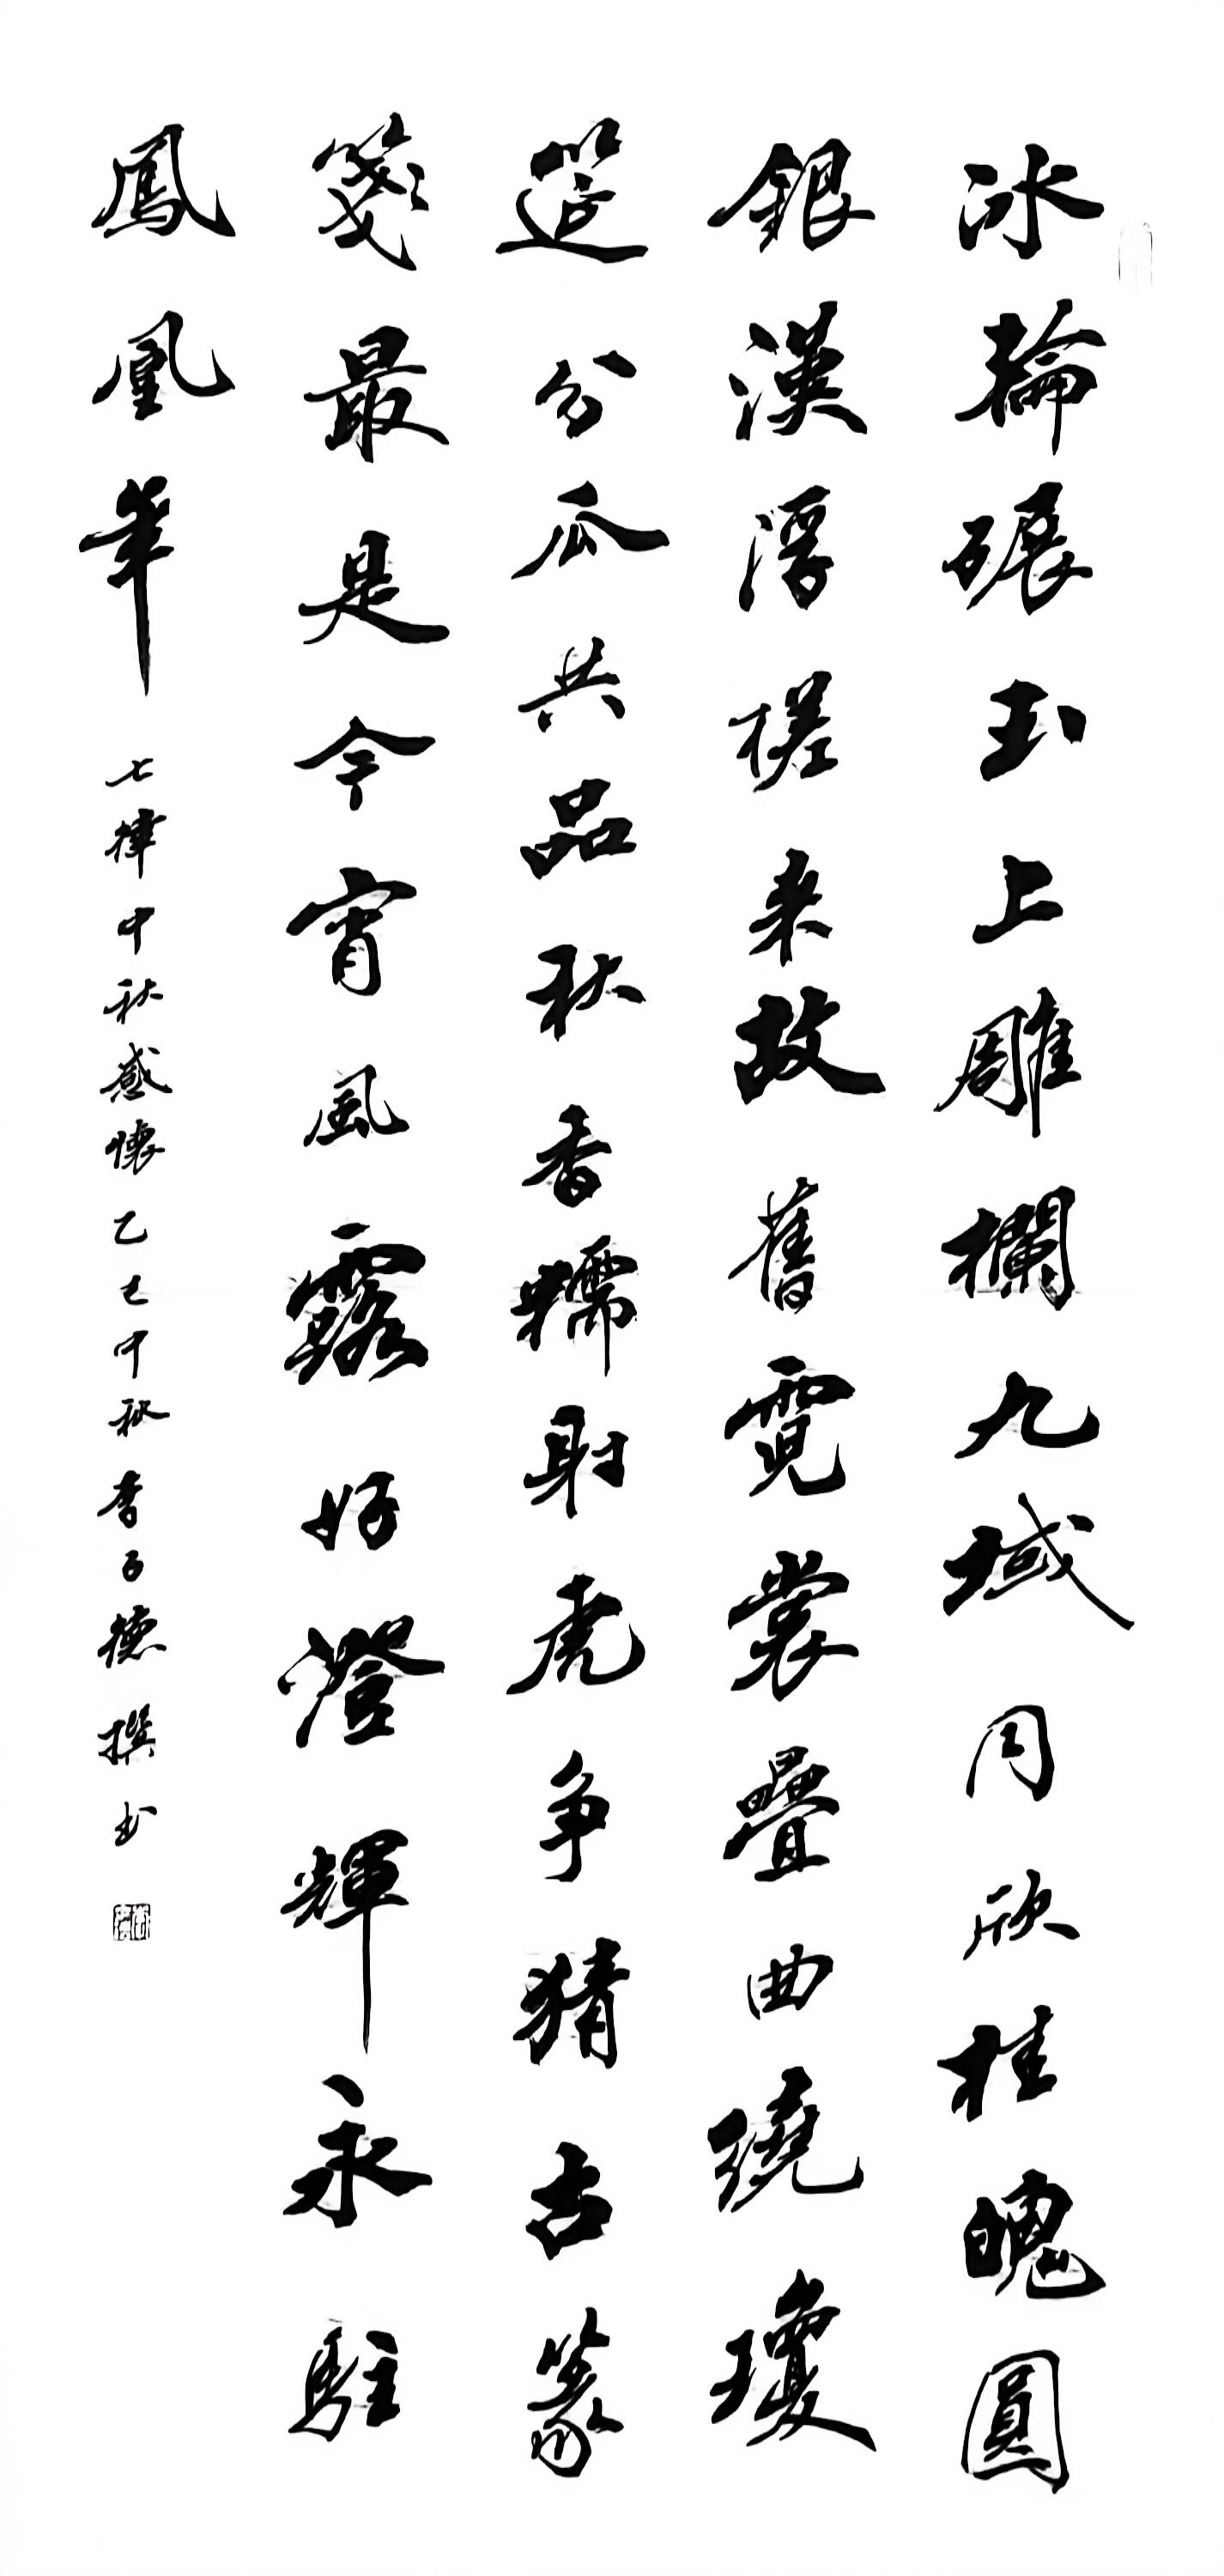 冰輪碾玉上雕欄九域同欣桂魄圓
銀漢浮槎来故舊霓裳疊曲繞瓊
筵分瓜共品秋香糯射虎争猜古篆
箋最是今宵風露好澄輝永駐
鳳凰年
七律中秋感懷乙巳中秋李子德撰书